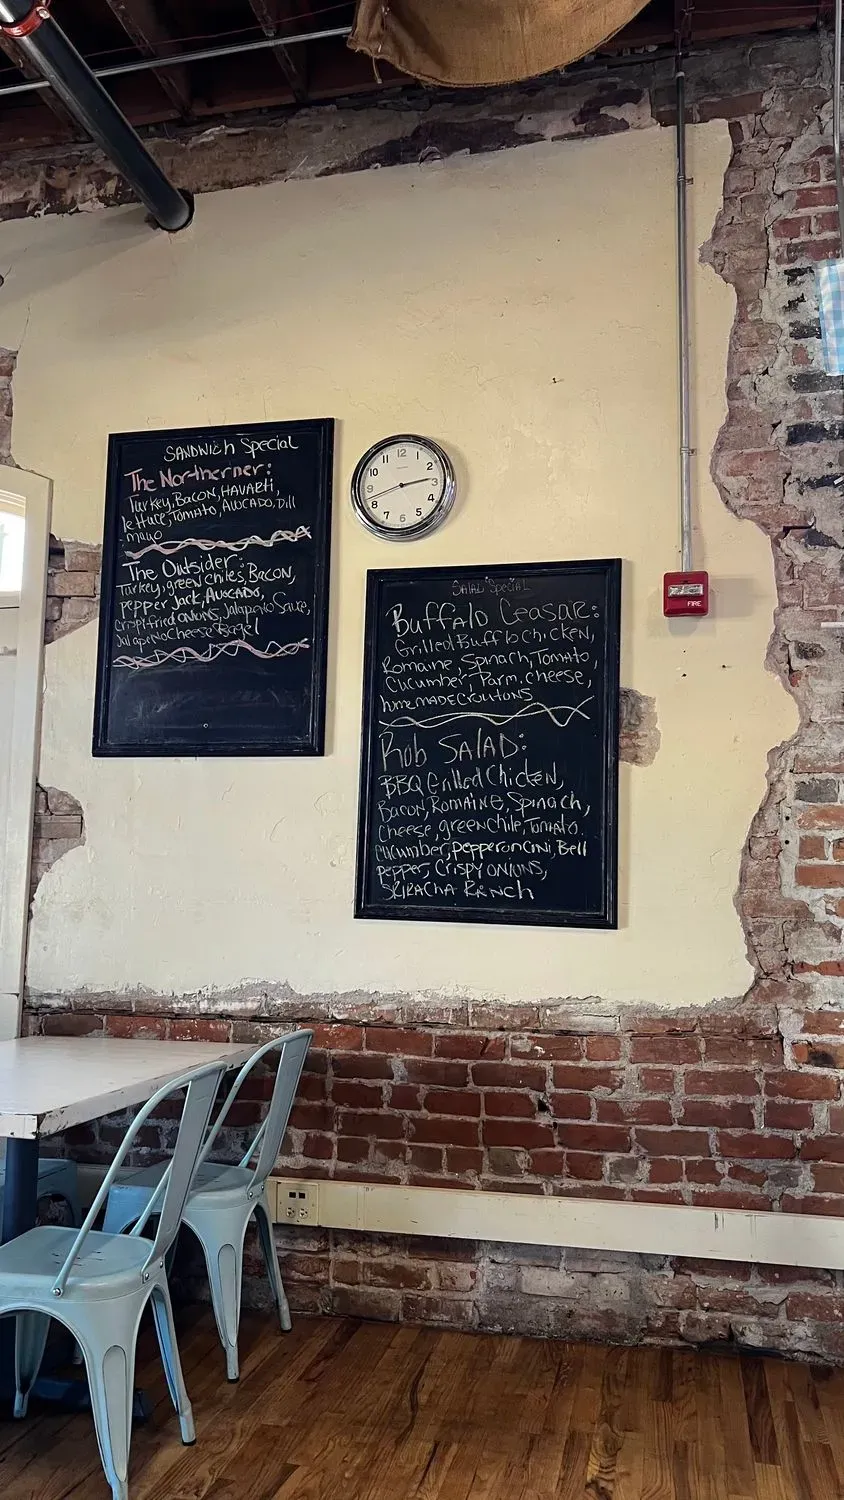 SANDWich Special
The Northerner:
Turkey, Bacon, HAVARTi,
lettuce, Tomato, AVOCADO, Dill
mayo
The Outsider:
Turkey, green chiles, BACON,
Pepper Jack, AVOCADO,
crispy fried onions, Jalapeño Sauce,
Jalapeno Cheese Bagel
12
11
1
10
2
9
3
8
4
7
5
6
SALAD Special
Buffalo Ceasar:
Grilled Bufflo chicken,
Romaine, Spinach, Tomato,
Cucumber, Parm. cheese,
homemade croutons
Rob SALAD:
BBQ Grilled Chicken,
Bacon, Romaine, Spinach,
Cheese, green chile, Tomato.
Cucumber, pepperoncini, Bell
pepper, Crispy onions,
SRIRACHA RANch
FIRE